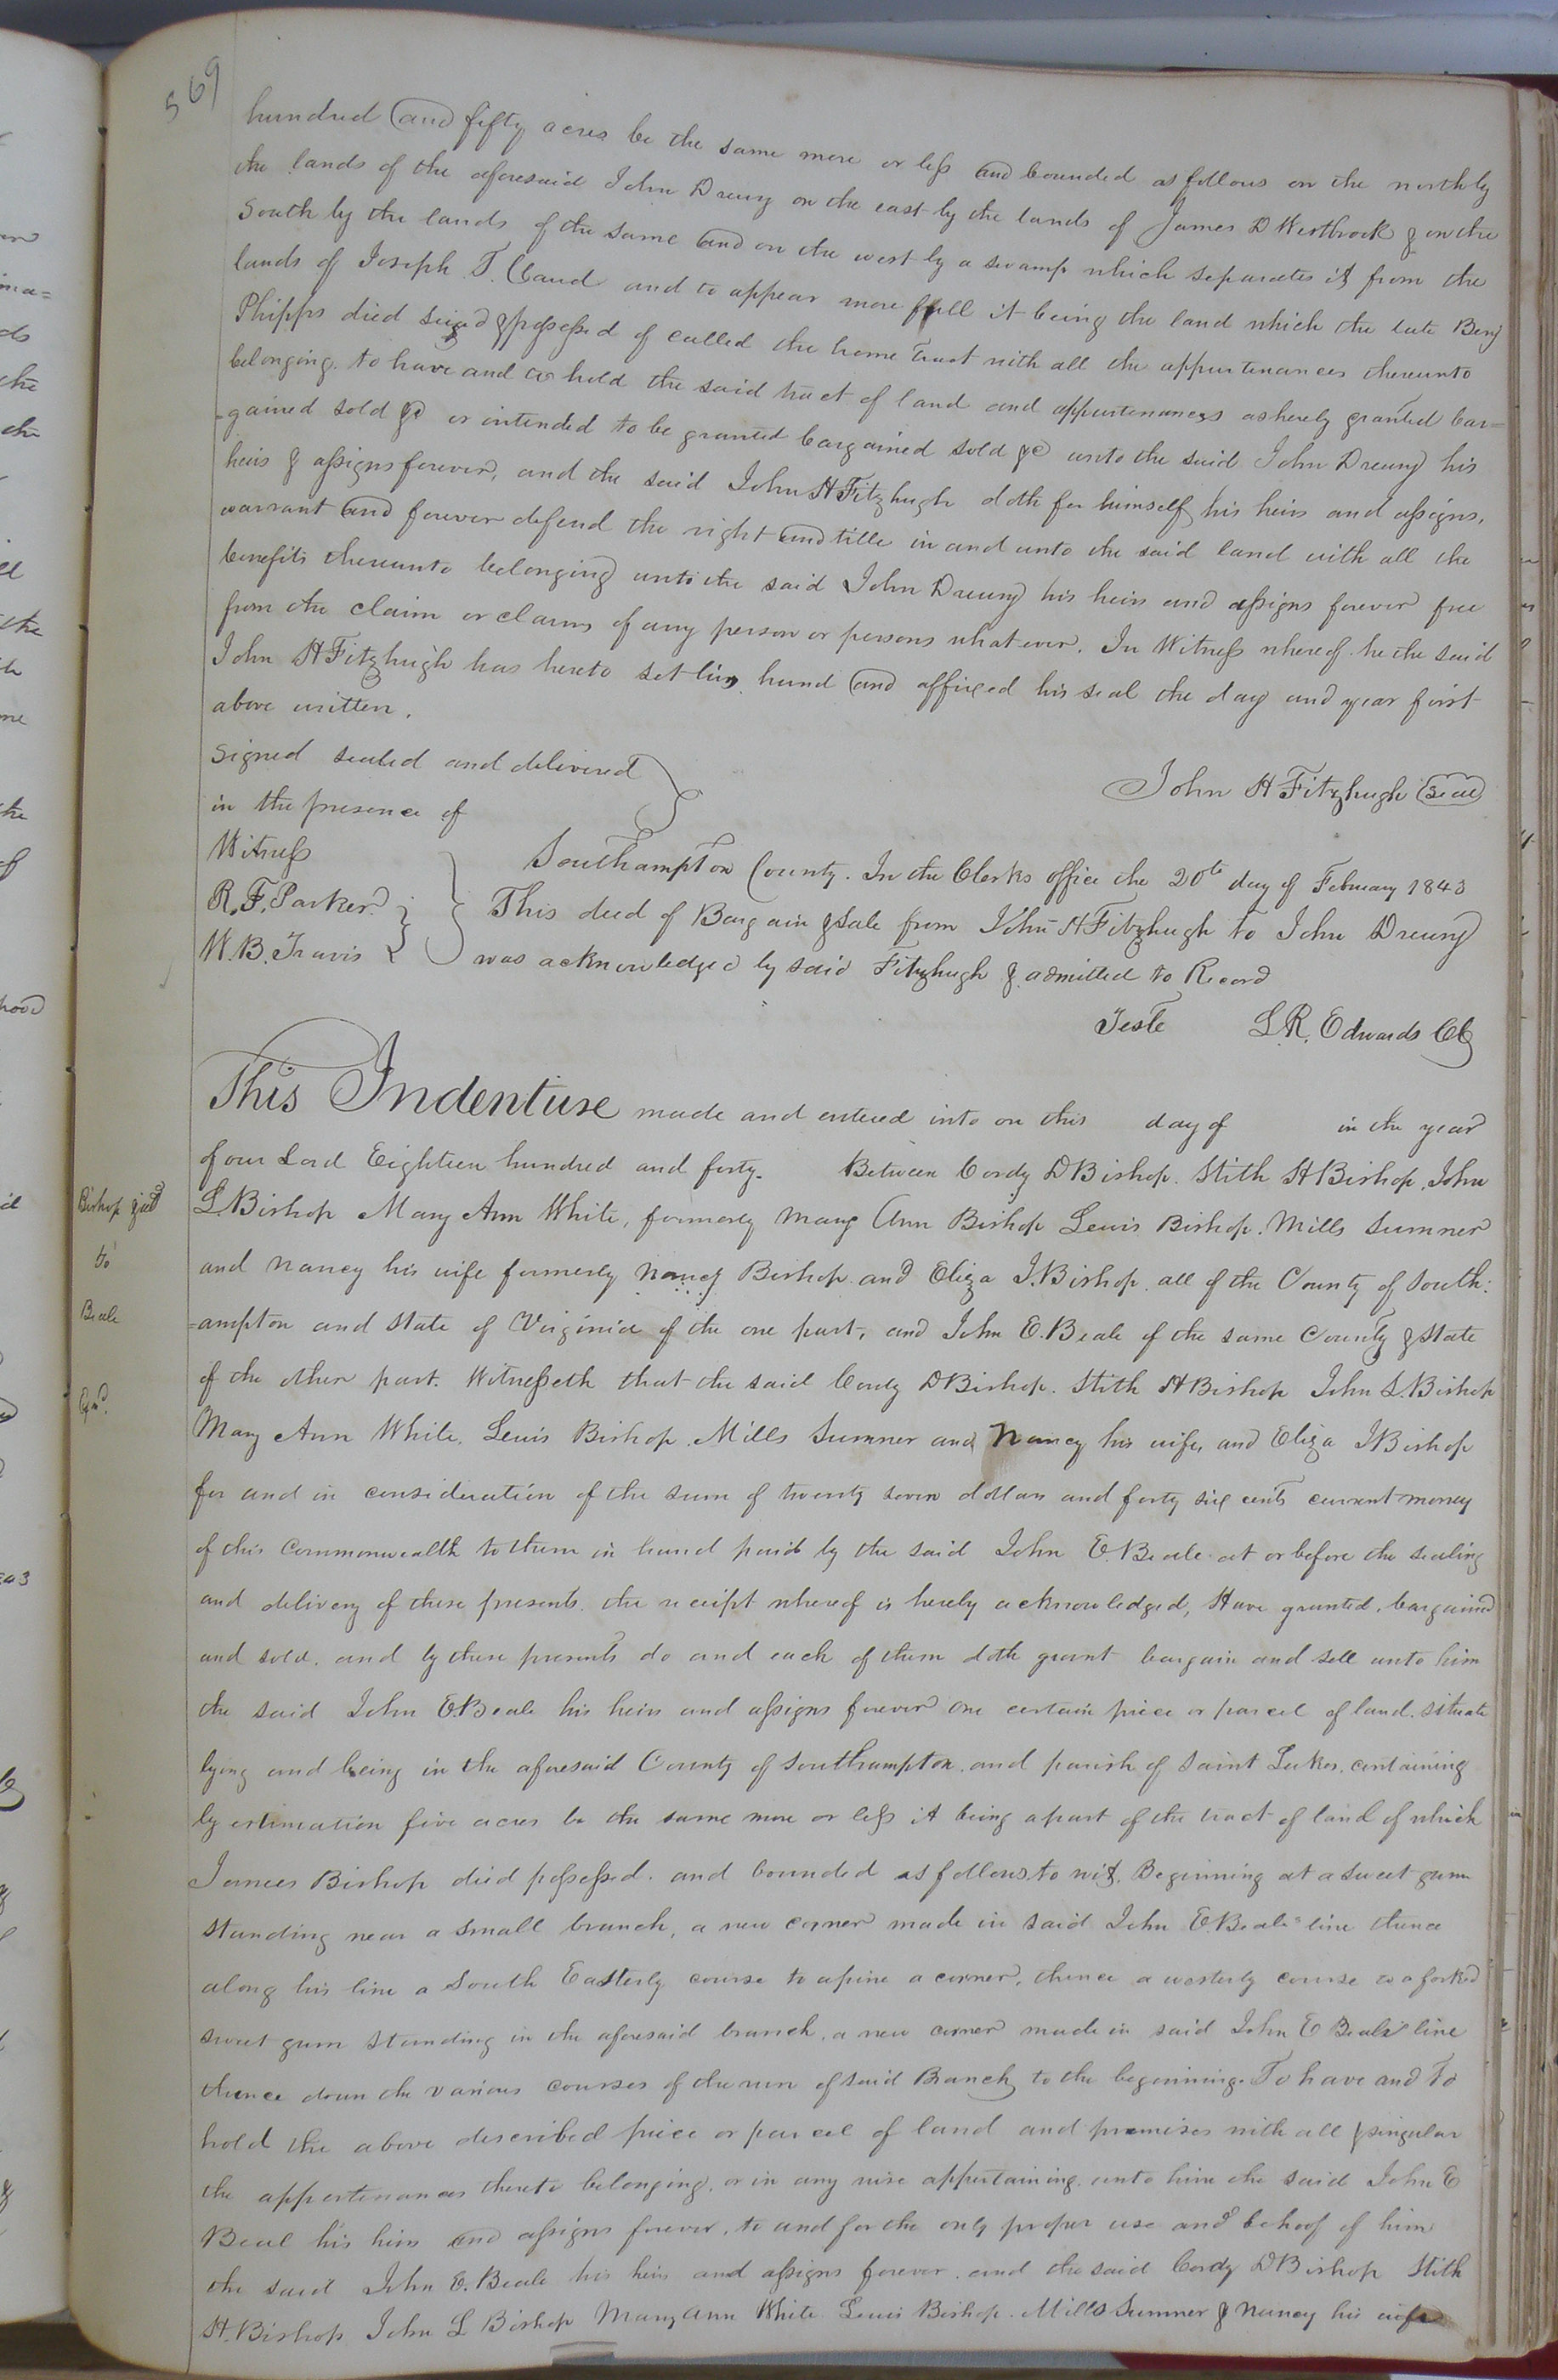 569
hundred and fifty acres be the same more or less and bounded as follows on the north by
the lands of the aforesaid John Drewry on the east by the lands of James D Westbrook & on the
South by the lands of the same and on the west by a swamp which separates it from the
lands of Joseph T. Claud and to appear more full it being the land which the late Benj
Phipps died seized & possessed of called the home tract with all the appurtenances thereunto
belonging. to have and to hold the said tract of land and appurtenances as hereby granted bar=
-gained sold &c or intended to be granted bargained sold &c unto the said John Drewry his
heirs & assigns forever, and the said John H Fitzhugh doth for himself his heirs and assigns,
warrant and forever defend the right and title in and unto the said land with all the
benefits thereunto belonging unto the said John Drewry his heirs and assigns forever free
from the claim or claims of any person or persons whatever. In Witness whereof he the said
John H Fitzhugh has hereto set his hand and affixed his seal the day and year first
above written.
Signed sealed and delivered
in the presence of
John H Fitzhugh Seal
Witness
R. F. Parker
W. B. Travis
Southampton County. In the Clerks office the 20th day of February 1843
This deed of Bargain & Sale from John H Fitzhugh to John Drewry
was acknowledged by said Fitzhugh & admitted to Record
Teste L R. Edwards Clk
This Indenture made and entered into on this day of in the year
of our Lord Eighteen hundred and forty. Between Cordy D Bishop. Stith H Bishop, John
L. Bishop Mary Ann White, formerly Mary Ann Bishop Lewis Bishop. Mills Sumner
Bishop
to
Beale
and Nancy his wife formerly Nancy Bishop and Eliza J. Bishop all of the County of South:
=ampton and State of Virginia of the one part, and John E. Beale of the same County & State
of the other part. Witnesseth that the said Cordy D Bishop. Stith H Bishop John L. Bishop
Mary Ann White. Lewis Bishop. Mills Sumner and Nancy his wife, and Eliza J Bishop
for and in consideration of the sum of twenty seven dollars and forty six cents current money
of this Commonwealth to them in hand paid by the said John E. Beale at or before the sealing
and delivery of these presents. the receipt whereof is hereby acknowledged, Have granted. bargained
and sold. and by these presents do and each of them doth grant bargain and sell unto him
the said John E. Beale his heirs and assigns forever one certain piece or parcel of land. situate
lying and being in the aforesaid County of Southampton. and parish of Saint Lukes. containing
by estimation five acres be the same more or less it being a part of the tract of land of which
James Bishop died possessed. and bounded as follows to wit, Beginning at a sweet gum
standing near a small branch, a new corner made in said John E. Beale's line thence
along his line a South Easterly course to a pine a corner, thence a westerly course to a forked
sweet gum standing in the aforesaid branch. a new corner made in said John E Beale's line
thence down the various courses of the run of said Branch to the beginning. To have and To
hold the above described piece or parcel of land and premises with all & singular
the appertenances thereto belonging, or in any wise appertaining. unto him the said John E
Beal his heirs and assigns forever, to and for the only proper use and behoof of him
the said John E. Beale his heirs and assigns forever. and the said Cordy D Bishop Stith
H. Bishop John L Bishop Mary Ann White Lewis Bishop. Mills Sumner & Nancy his wife